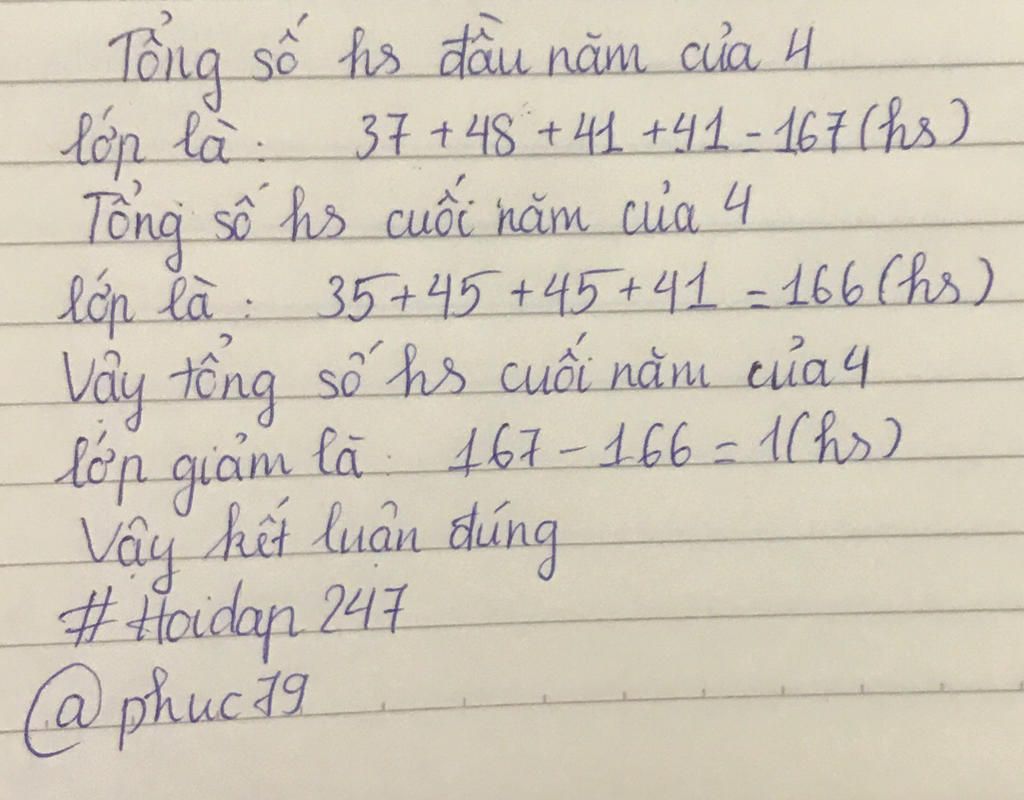 Tổng số hs đầu năm của 4
lớp là: 37 + 48 + 41 + 41 = 167 (hs)
Tổng số hs cuối năm của 4
lớp là: 35 + 45 + 45 + 41 = 166 (hs)
Vậy tổng số hs cuối năm của 4
lớp giảm là: 167 - 166 = 1 (hs)
Vậy kết luận đúng
# Hoidap 247
@phuc79